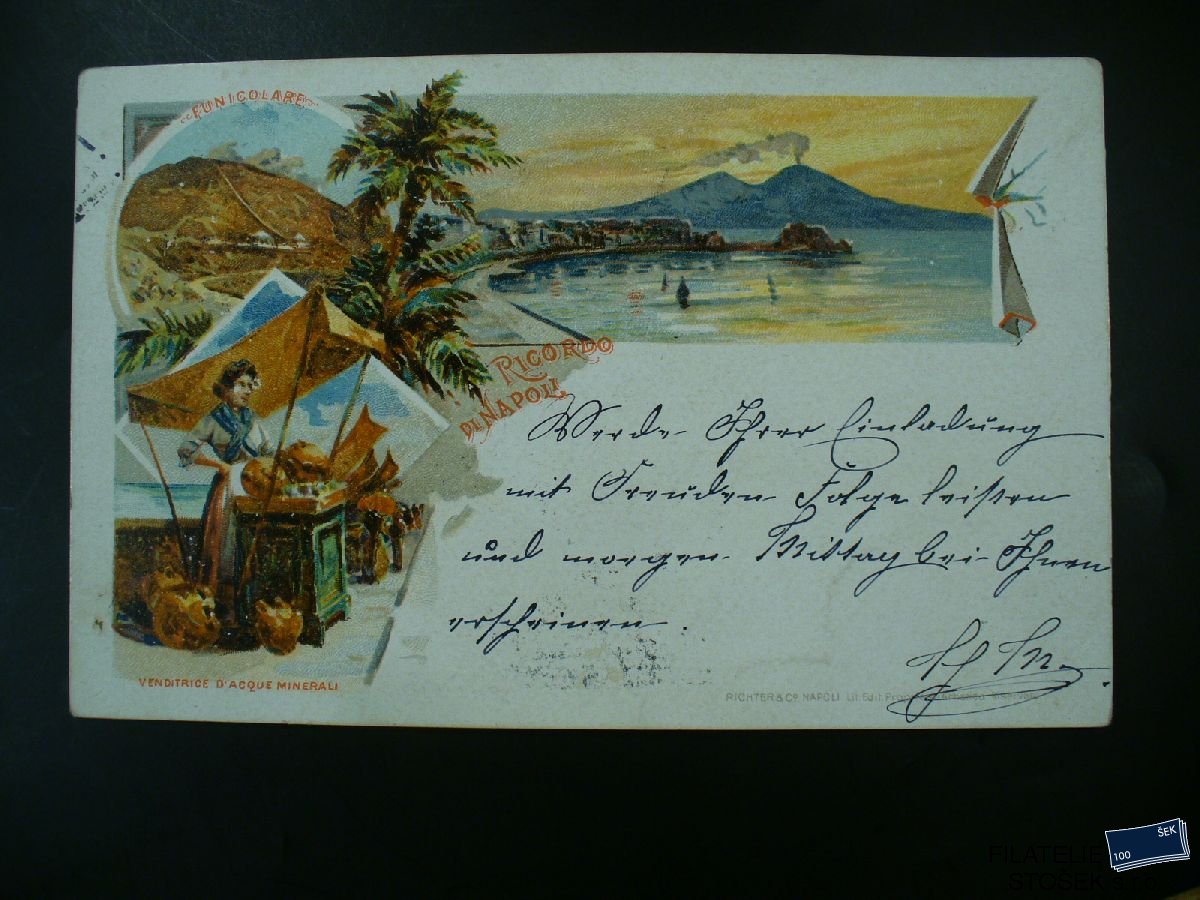 FUNICOLARE
RICORDO
DI NAPOLI
Werde Ihrer Einladung
mit Freuden Folge leisten
und morgen Mittag bei Ihnen
erscheinen.
VENDITRICE D'ACQUE MINERALI
RICHTER & Co. NAPOLI Lit. Edit.
ŠEK
100
FILATELIE
STOŠEK